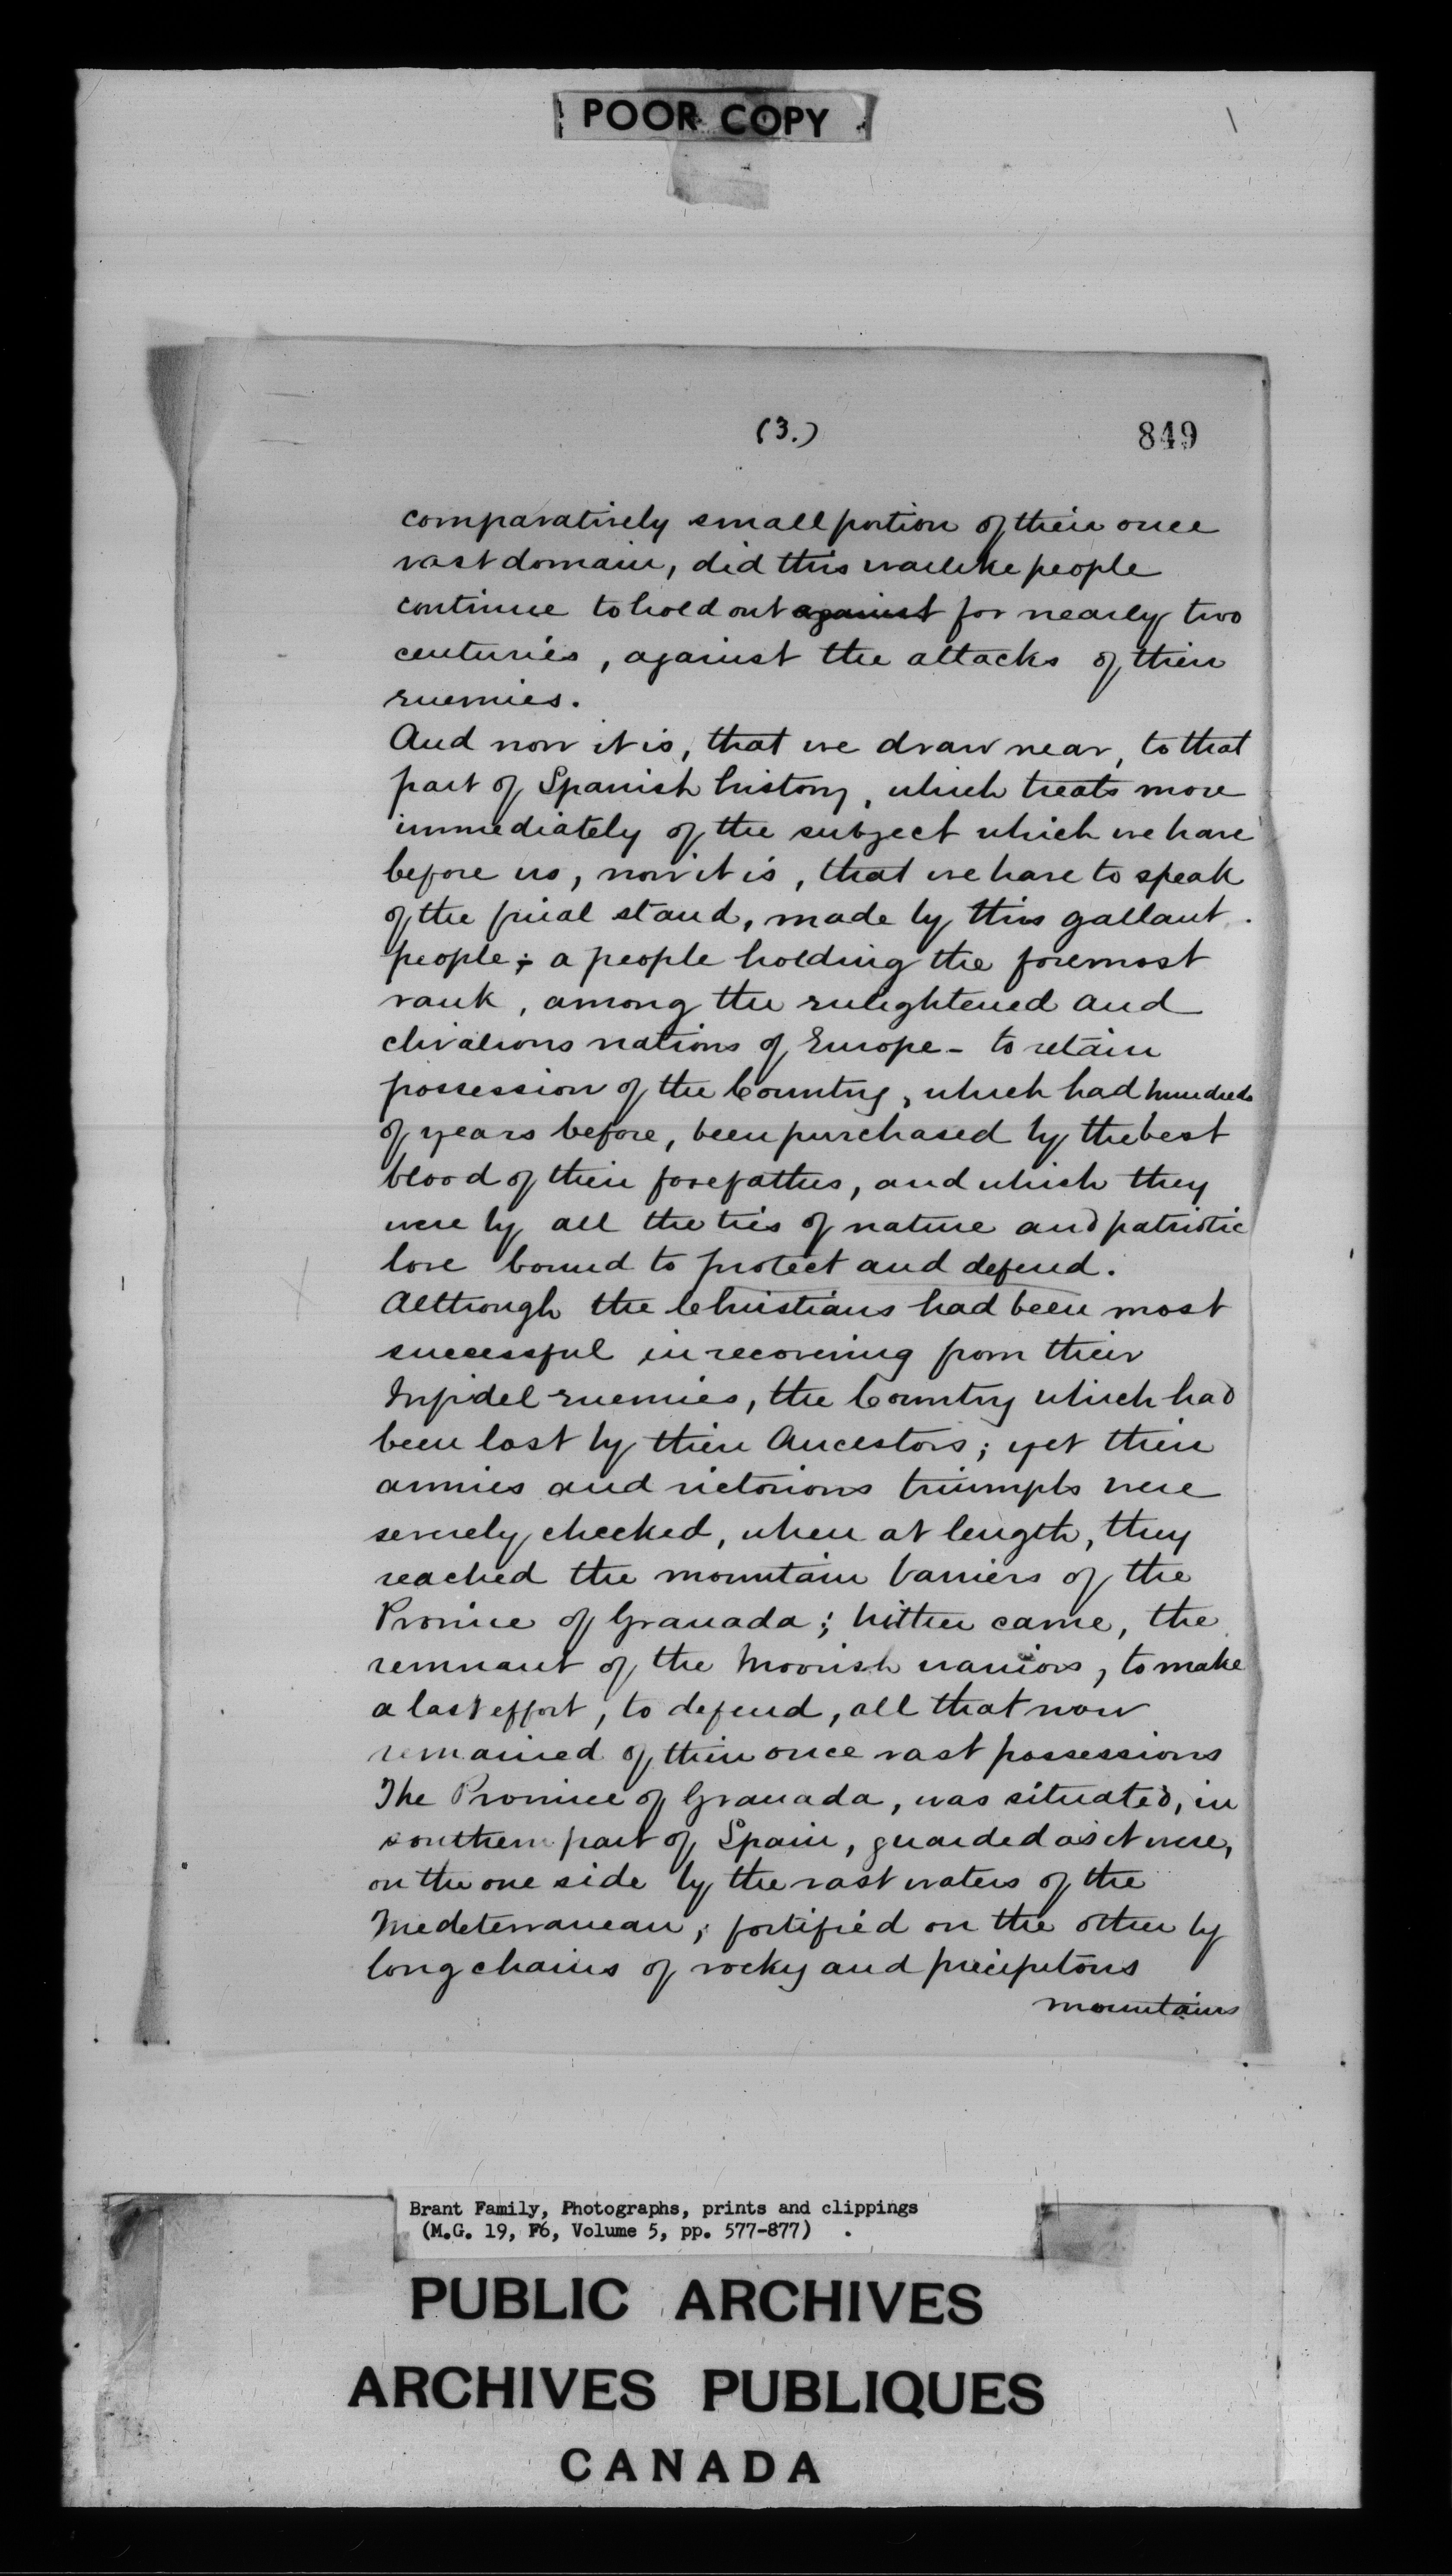 POOR COPY
(3.)
849
comparatively small portion of their once
vast domain, did this warlike people
continue to hold out against for nearly two
centuries, against the attacks of their
enemies.
And now it is, that we draw near, to that
part of Spanish history, which treats more
immediately of the subject which we have
before us, now it is, that we have to speak
of the final stand, made by this gallant
people; a people holding the foremost
rank, among the enlightened and
chivalrous nations of Europe - to retain
possession of the Country, which had hundreds
of years before, been purchased by the best
blood of their forefathers, and which they
were by all the ties of nature and patriotic
love bound to protect and defend.
Although the Christians had been most
successful in recovering from their
Infidel enemies, the Country which had
been lost by their Ancestors; yet their
armies and victorious triumphs were
severely checked, when at length, they
reached the mountain barriers of the
Province of Granada; hither came, the
remnant of the Moorish warriors, to make
a last effort, to defend, all that now
remained of their once vast possessions
The Province of Granada, was situated, in
southern part of Spain, guarded as it were,
on the one side by the vast waters of the
Mediterranean; fortified on the other by
long chains of rocky and precipitous
mountains
Brant Family, Photographs, prints and clippings
(M.G. 19, F6, Volume 5, pp. 577-877)
PUBLIC ARCHIVES
ARCHIVES PUBLIQUES
CANADA